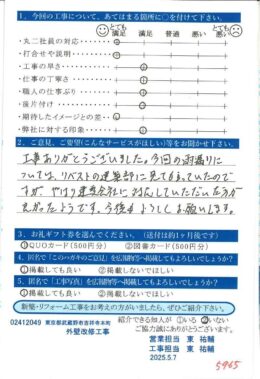 1．今回の工事について、あてはまる箇所に○を付けて下さい。
とても満足 満足 普通 悪い とても悪い
・丸二社員の対応…
・打合せや説明…
・工事の早さ…
・仕事の丁寧さ…
・職人の仕事ぶり…
・後片付け…
・期待したイメージとの差…
・弊社に対する印象…
2．ご意見、ご要望(こんなサービスがほしい)等をお聞かせ下さい。
工事ありがとうございました。今回の雨漏りに
ついては、リベストの建築部に見てもらっていたので
すが、やはり建築会社に対応していただいた方が
よかったようです。今後もよろしくお願いします。
3．お礼ギフト券を選んでください。(送付は約1ヶ月後です)
①QUOカード(500円分) ②図書カード(500円分)
4．匿名で「このハガキのご意見」を広報物等へ掲載してもよろしいでしょうか?
①掲載しても良い ②掲載しないでほしい
5．匿名で「工事写真」を広報物等へ掲載してもよろしいでしょうか?
①掲載しても良い ②掲載しないでほしい
新築・リフォーム工事をお考えの方がいましたら、ぜひご紹介下さい。
紹介できる知人が ①いる ②いない
ご協力誠にありがとうございます。
02412049 東京都武蔵野市吉祥寺本町
外壁改修工事
営業担当 東 祐輔
工事担当 東 祐輔
2025.5.7
5945